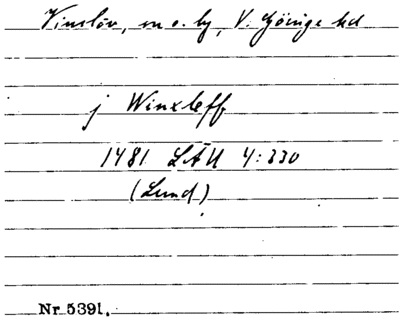 Vinslöv, sn o. by, V. Göinge hd
j Winxleff
1481 LÄU 4:330
(Lund)
Nr 5391.